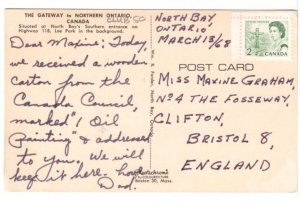 THE GATEWAY to NORTHERN ONTARIO
CANADA
Situated at North Bay's Southern entrance
Highway 11B. Lee Park in the background.
Dear Maxine: Today,
we received a wooden
carton from the
Canada Council,
marked "1 Oil
Painting" & addressed
to you. We will
keep it here. Love
Dad.
NORTH BAY,
ONTARIO
MARCH 13/68
CANADA
2
POST CARD
MISS MAXINE GRAHAM,
Nº4 THE FOSSEWAY,
CLIFTON,
BRISTOL 8,
ENGLAND
Boston 30, Mass.